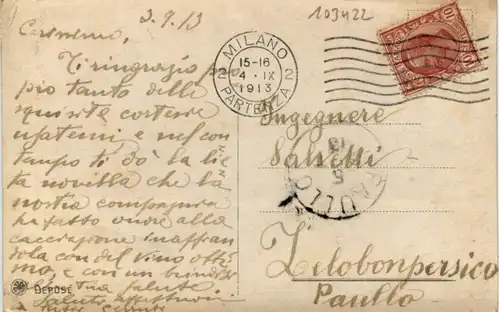 3.9.13
103422
Carissimo,
Ti ringrazio
pio tanto delle
squisite cortesie
usatemi e nel con
tempo ti dò la lie
ta novella che la
nostra compagnia
ha fatto onore alla
cacciagione inaffian
dola con del vino otti
mo, e con un brindisi
tua salute.
Saluti affettuosi
MILANO
15-16
4 . IX
1913
2 2
PARTENZA
10 10
Ingegnere
Salvetti
PAULLO
Zelobonpersico
Paullo
DEPOSÉ